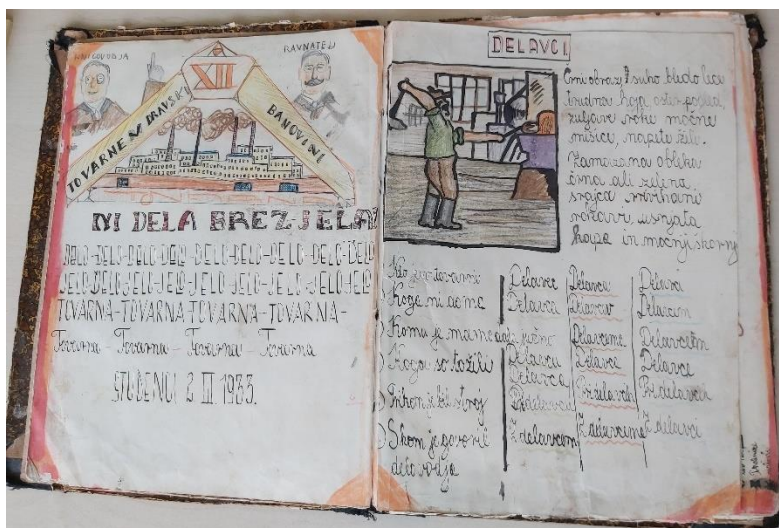 RAVNATELJ
XII
TOVARNE V DRAVSKI BANOVINI
NI DELA BREZ JELA
DELO-DELO-DELO-DELO-DELO-DELO-DELO-DELO-DELO
JELO-JELO-JELO-JELO-JELO-JELO-JELO-JELO
TOVARNA-TOVARNA-TOVARNA-TOVARNA-
Tovarna-Tovarna-Tovarna-Tovarna
ŠTUDENCI 2 III 1935.
DELAVCI
Črni obrazi, suho bledo lice
trudna hoja oster pogled,
žuljave roke močne
mišice, napete žile.
Razmazana obleka
črna ali zelena
srajca
rokavi, usnjata
kapa in močnji skornji
Kdo je v tovarni Delavec Delavca Delavci
Koga ni doma Delavca Delavcev Delavcev
Komu je mama južino Delavcu Delavcema Delavcem
Koga so tožili Delavca Delavca Delavce
Pri kom je bil stroj Pri delavcu Pri delavcih Pri delavcih
S kom je govoril Z delavcem Z delavcema Z delavci
delovodja